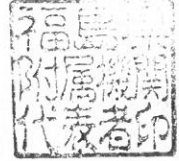 福島
附属機関
代表者印